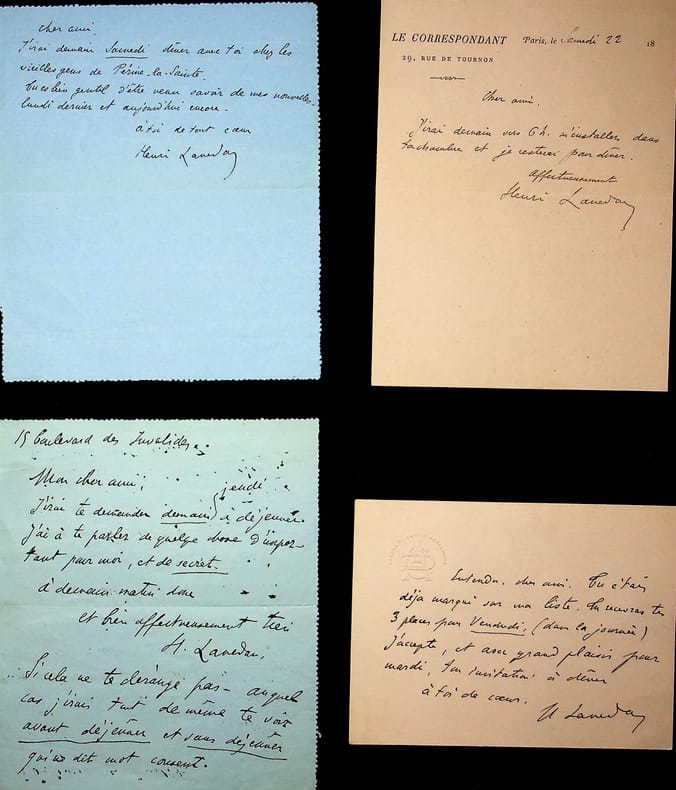 cher ami,
J'irai demain Samedi dîner avec toi chez les
vieilles gens de Périne-la-Sainte.
Tu es bien gentil d'être venu savoir de mes nouvelles
lundi dernier et aujourd'hui encore.
à toi de tout cœur
Henri Lavedan
LE CORRESPONDANT Paris, le Samedi 22 18
29, RUE DE TOURNON
Cher ami.
J'irai demain vers 6 h. m'installer dans
ta chambre et je resterai pour dîner.
affectueusement
Henri Lavedan
15 boulevard des Invalides.
Mon cher ami,
jeudi
J'irai te demander demain à déjeuner.
J'ai à te parler de quelque chose d'impor-
tant pour moi, et de secret.
à demain matin donc
et bien affectueusement tien
H. Lavedan,
Si cela ne te dérange pas - auquel
cas j'irais tout de même te voir
avant déjeuner et sans déjeuner
qui ne dit mot consent.
Entendu, cher ami. Tu étais
déjà marqué sur ma liste. Tu recevras tes
3 places pour Vendredi, (dans la journée)
J'accepte, et avec grand plaisir pour
mardi, ton invitation à dîner
à toi de cœur.
H Lavedan